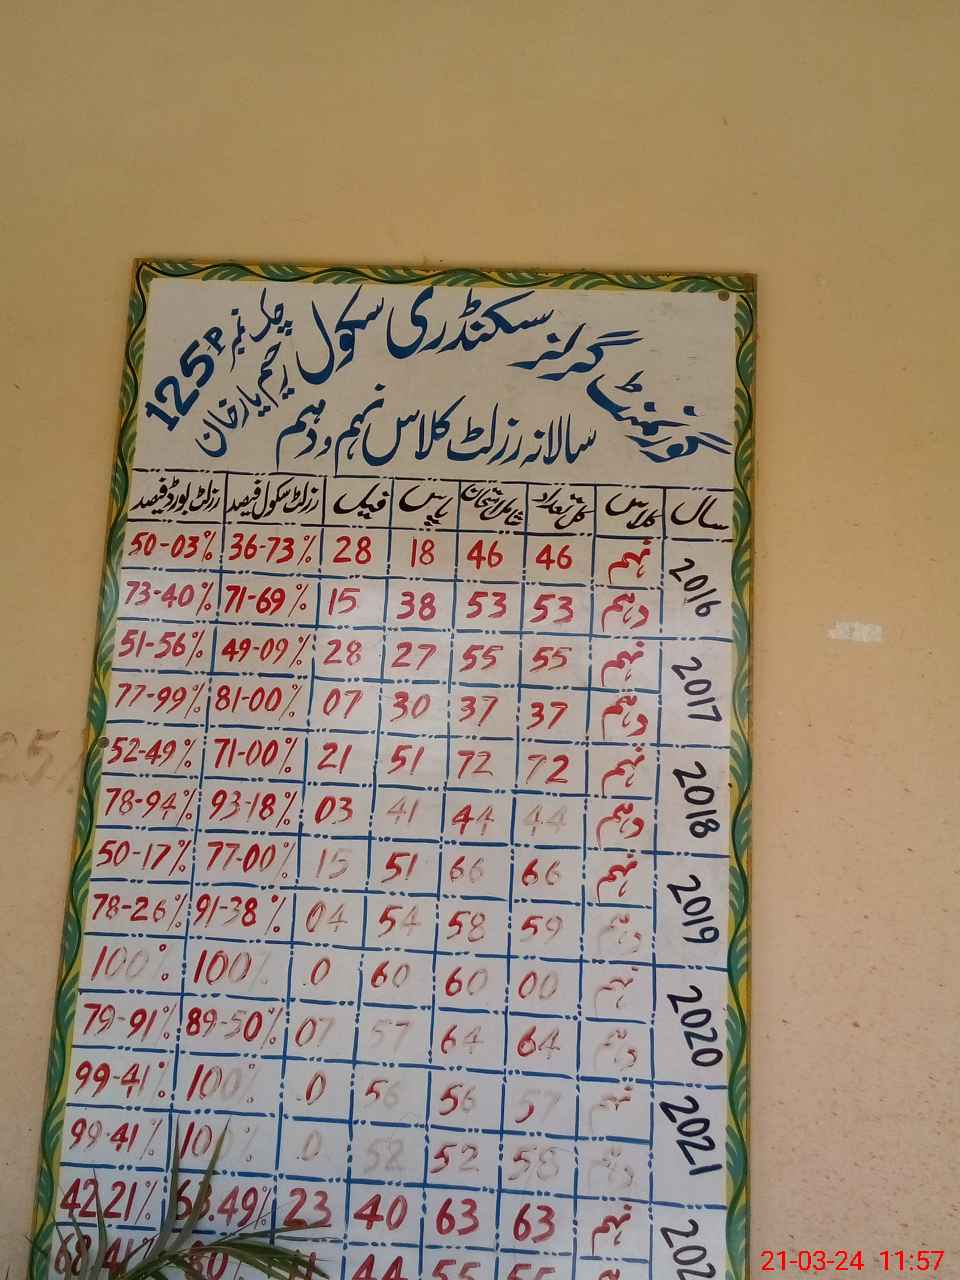 گورنمنٹ گرلز سکینڈری سکول چک نمبر 125P رحیم یار خان
سالانہ رزلٹ کلاس نہم و دہم
سال کلاس کل تعداد شامل امتحان پاس فیل رزلٹ سکول فیصد رزلٹ بورڈ فیصد
2016 نہم 46 46 18 28 36-73% 50-03%
دہم 53 53 38 15 71-69% 73-40%
2017 نہم 55 55 27 28 49-09% 51-56%
دہم 37 37 30 07 81-00% 77-99%
2018 نہم 72 72 51 21 71-00% 52-49%
دہم 44 44 41 03 93-18% 78-94%
2019 نہم 66 66 51 15 77-00% 50-17%
دہم 59 58 54 04 91-38% 78-26%
2020 نہم 00 60 60 0 100% 100%
دہم 64 64 57 07 89-50% 79-91%
2021 نہم 57 56 56 0 100% 99-41%
دہم 58 52 52 0 100% 99-41%
202 نہم 63 63 40 23 63.49% 42.21%
55 55 44 11 80 68.41%
21-03-24 11:57